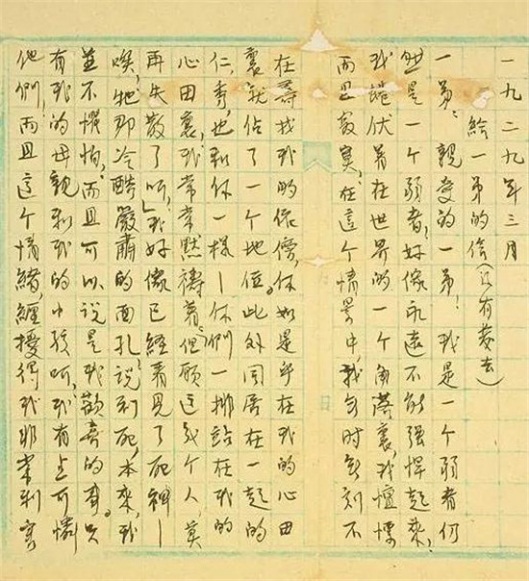 一九二九年三月
給一弟的信(沒有發去)
一弟:親愛的一弟!我是一个弱者仍
然是一个弱者,好像永遠不能強悍起來,
我蜷伏着在世界的一个角落裏,我惶悸
而且寂寞,在這个情景中,我无时无刻不
在尋找我的,你如是乎在我的心田
裏就佔了一个地位。此外同居在一起的
仁,秀,也和你一樣—你們一排站在我的
心田裏,我常常默禱着:但願這幾个人,莫
再失散了呵!我好像已經看見了死神—
唉,牠那冷酷嚴肅的面孔,說到死,本來,我
並不懼怕,而且可以說是我歡喜的事。只
有我的母親和我的小孩呵,我有点可憐
他們,而且這个情緒,纏擾得我非常利害